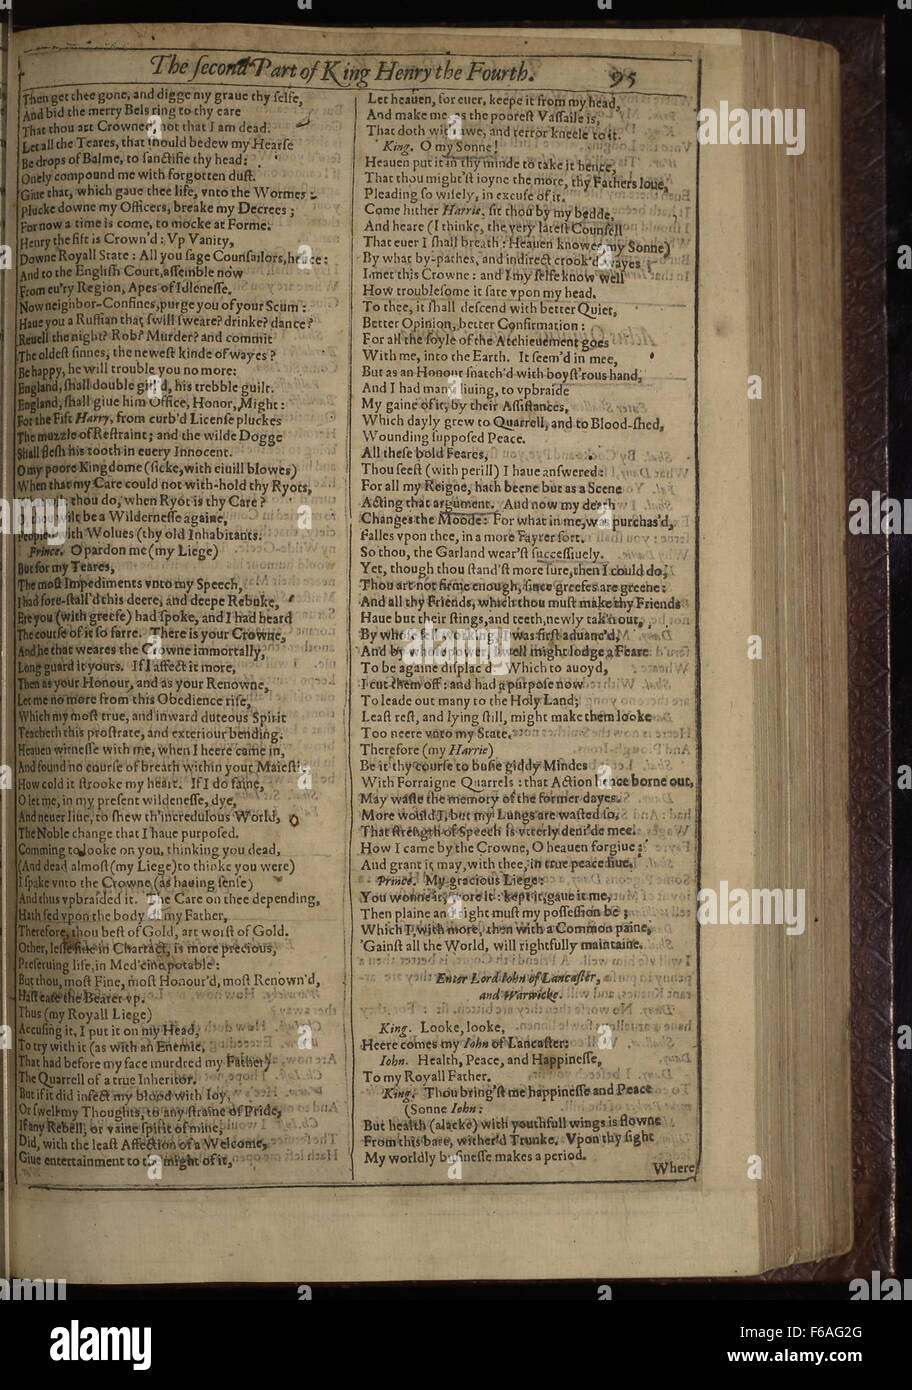 The ſecond Part of King Henry the Fourth. 95
Then get thee gone, and digge my graue thy ſelfe,
And bid the merry Bels ring to thy eare
That thou art Crowned, not that I am dead.
Let all the Teares, that ſhould bedew my Hearſe
Be drops of Balme, to ſanctifie thy head:
Onely compound me with forgotten duſt.
Giue that, which gaue thee life, vnto the Wormes:
Plucke downe my Officers, breake my Decrees;
For now a time is come, to mocke at Forme.
Henry the fift is Crown'd: Vp Vanity,
Downe Royall State: All you ſage Counſailors, hence:
And to the Engliſh Court, aſſemble now
From eu'ry Region, Apes of Idleneſſe.
Now neighbor-Confines, purge you of your Scum:
Haue you a Ruffian that ſwill ſweare? drinke? dance?
Reuell the night? Rob? Murder? and commit
The oldeſt ſinnes, the neweſt kinde of wayes?
Be happy, he will trouble you no more:
England, ſhall double gill'd, his trebble guilt.
England, ſhall giue him Office, Honor, Might:
For the Fift Harry, from curb'd Licenſe pluckes
The muzzle of Reſtraint; and the wilde Dogge
Shall fleſh his tooth in euery Innocent.
O my poore Kingdome (ſicke, with ciuill blowes)
When that my Care could not with-hold thy Ryots,
thou do, when Ryot is thy Care?
O thou wilt be a Wilderneſſe againe,
Peopled with Wolues (thy old Inhabitants.
Prince. O pardon me (my Liege)
But for my Teares,
The moſt Impediments vnto my Speech,
I had fore-ſtall'd this deere, and deepe Rebuke,
Ere you (with greefe) had ſpoke, and I had heard
The courſe of it ſo farre. There is your Crowne,
And he that weares the Crowne immortally,
Long guard it yours. If I affect it more,
Then as your Honour, and as your Renowne,
Let me no more from this Obedience riſe,
Which my moſt true, and inward duteous Spirit
Teacheth this proſtrate, and exteriour bending.
Heauen witneſſe with me, when I heere came in,
And found no courſe of breath within your Maieſtie,
How cold it ſtrooke my heart. If I do faine,
O let me, in my preſent wildeneſſe, dye,
And neuer liue, to ſhew th'incredulous World,
The Noble change that I haue purpoſed.
Comming to looke on you, thinking you dead,
(And dead almoſt (my Liege) to thinke you were)
I ſpake vnto the Crowne (as hauing ſenſe)
And thus vpbraided it. The Care on thee depending,
Hath fed vpon the body of my Father,
Therefore, thou beſt of Gold, art worſt of Gold.
Other, leſſe fine in Charract, is more precious,
Preſeruing life, in Med'cine potable:
But thou, moſt Fine, moſt Honour'd, moſt Renown'd,
Haſt eate the Bearer vp.
Thus (my Royall Liege)
Accuſing it, I put it on my Head,
To try with it (as with an Enemie,
That had before my face murdred my Father)
The Quarrell of a true Inheritor.
But if it did infect my blood with Ioy,
Or ſwell my Thoughts, to any ſtraine of Pride,
If any Rebell, or vaine ſpirit of mine,
Did, with the leaſt Affection of a Welcome,
Giue entertainment to the might of it,
Let heauen, for euer, keepe it from my head,
And make me, as the pooreſt Vaſſaile is,
That doth with awe, and terror kneele to it.
King. O my Sonne!
Heauen put it in thy minde to take it hence,
That thou might'ſt ioyne the more, thy Fathers loue,
Pleading ſo wiſely, in excuſe of it.
Come hither Harrie, ſit thou by my bedde,
And heare (I thinke, the very lateſt Counſell
That euer I ſhall breath: Heauen knowes, my Sonne)
By what by-pathes, and indirect crook'd wayes
I met this Crowne: and I my ſelfe know well
How troubleſome it ſate vpon my head.
To thee, it ſhall deſcend with better Quiet,
Better Opinion, better Confirmation:
For all the ſoyle of the Atchieuement goes
With me, into the Earth. It ſeem'd in mee,
But as an Honour ſnatch'd with boyſt'rous hand,
And I had many liuing, to vpbraide
My gaine of it, by their Aſſiſtances,
Which dayly grew to Quarrell, and to Blood-ſhed,
Wounding ſuppoſed Peace.
All theſe bold Feares,
Thou ſeeſt (with perill) I haue anſwered:
For all my Reigne, hath beene but as a Scene
Acting that argument. And now my death
Changes the Moode: For what in me, was purchas'd,
Falles vpon thee, in a more Fayrer ſort.
So thou, the Garland wear'ſt ſucceſſiuely.
Yet, though thou ſtand'ſt more ſure, then I could do,
Thou art not firme enough, ſince greefes are greene:
And all thy Friends, which thou muſt make thy Friends
Haue but their ſtings, and teeth, newly tak'n out,
By whoſe fell working, I was firſt aduanc'd,
And by whoſe power, I well might lodge a Feare
To be againe diſplac'd. Which to auoyd,
I cut them off: and had a purpoſe now
To leade out many to the Holy Land;
Leaſt reſt, and lying ſtill, might make them looke
Too neere vnto my State.
Therefore (my Harrie)
Be it thy courſe to buſie giddy Mindes
With Forraigne Quarrels: that Action hence borne out,
May waſte the memory of the former dayes.
More would I, but my Lungs are waſted ſo,
That ſtrength of Speech is vtterly deni'de mee.
How I came by the Crowne, O heauen forgiue:
And grant it may, with thee, in true peace liue.
Prince. My gracious Liege:
You wonne it, wore it: kept it, gaue it me,
Then plaine and right muſt my poſſeſſion be;
Which I, with more, then with a Common paine,
'Gainſt all the World, will rightfully maintaine.
Enter Lord Iohn of Lancaſter,
and Warwicke.
King. Looke, looke,
Heere comes my Iohn of Lancaſter:
Iohn. Health, Peace, and Happineſſe,
To my Royall Father.
King. Thou bring'ſt me happineſſe and Peace
(Sonne Iohn:
But health (alacke) with youthfull wings is flowne
From this bare, wither'd Trunke. Vpon thy ſight
My worldly buſineſſe makes a period.
Where
alamy
Image ID: F6AG2G
www.alamy.com